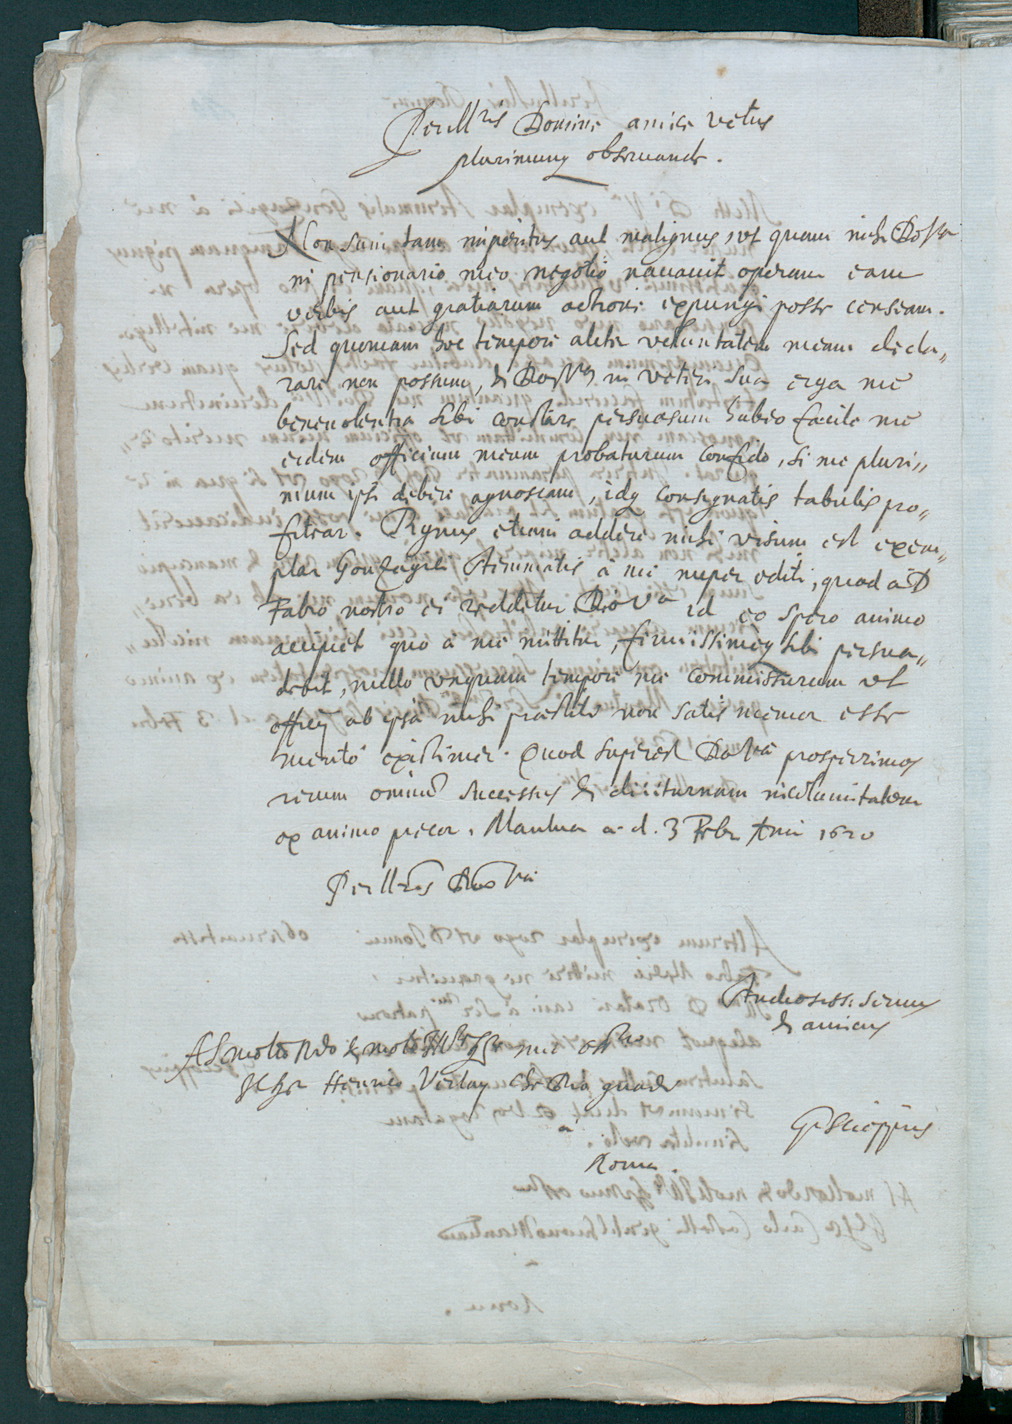 Perill.ris Domine amice vetus
plurimumq observande.
Non sum tam imperitus aut malignus, ut quam mihi
in pensionario meo negotio navavit operam eam
verbis aut gratiarum actione expungi posse censeam.
Sed quoniam hoc tempore aliter voluntatem meam decla„
rare non possum, & in veteri sua erga me
benevolentia sibi constare persuasum habeo facile me
eidem officium meum probaturum confido, si me pluri„
mum ipsi debere agnoscam, idq consignatis tabulis pro„
fitear. Pignus etiam addere mihi visum est exem„
plar Gonzagici Stemmatis à me nuper editi, quod à D
Fabro nostro ei reddetur. id eo spero animo
accipiet quo à me mittitur, firmissimeq sibi persua„
debit, nullo unquam tempore me commissurum ut
officij ab ipsa mihi praestiti non satis memor esse
merito existimer. Quod superest prosperrimos
rerum omniũ successus & diuturnam incolumitatem
ex animo precor. Mantua a. d. 3 Febr. Anni 1620
Perill.ris
Studiosiss. servus
& amicus
Al molto Rdo & molto Ill.re
Henrico
G. Scioppius
à
Roma.